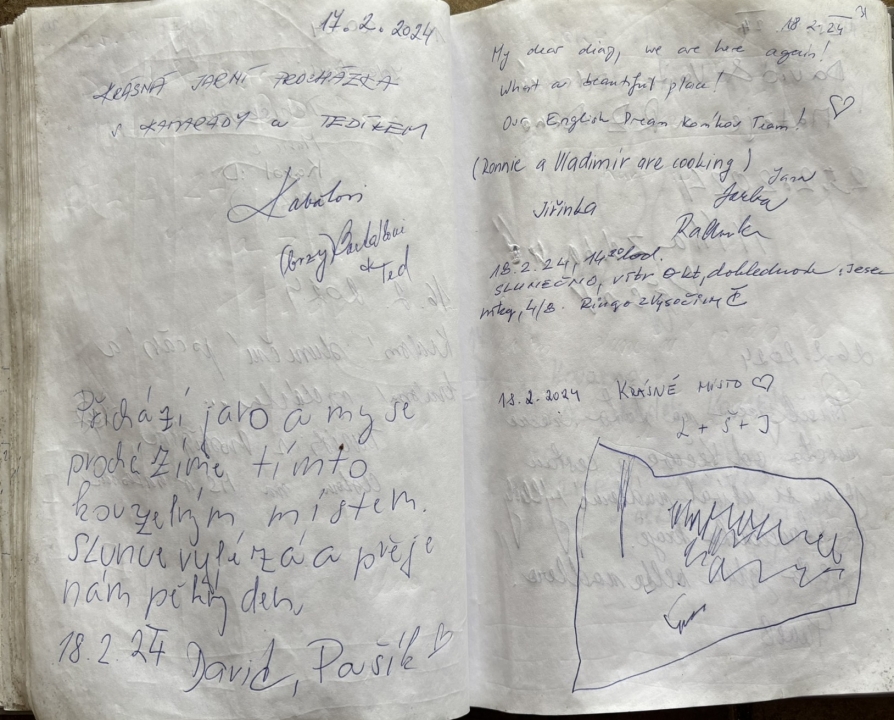 17.2.2024
KRÁSNÁ JARNÍ PROCHÁZKA
S KAMARÁDY a TEDÍKEM
Kabátovi
Ted
Přichází jaro a my se
procházíme tímto
kouzelným místem.
Slunce vylézá a přeje
nám pěkný den,
18.2.24 David, Pašík ♡
31
18.2.24
My dear diary, we are here again!
What a beautiful place!
Our English Dream Team! ♡
(Ronnie a Vladimír are cooking)
Jiřinka
Jana
Jarka
Radunka
18.2.24, 14 hod.
SLUNEČNO, vítr 0kt, dohlednost
4/8. Ringo z Vysočiny
18.2.2024 KRÁSNÉ MÍSTO ♡
L + Š + J